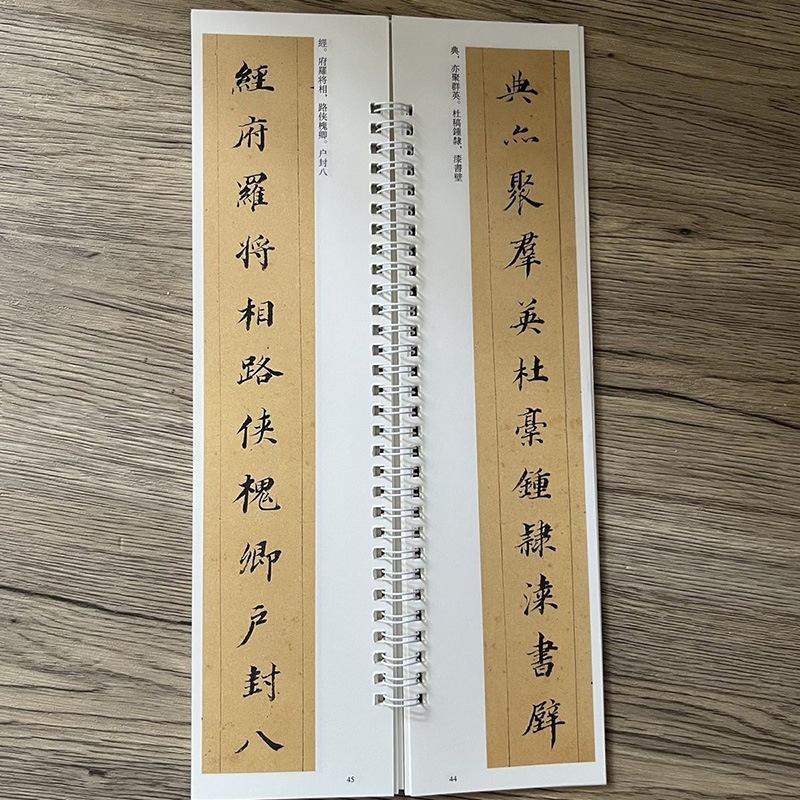 典亦聚羣英杜稾鍾隸漆書壁
典，亦聚群英。杜稿鍾隸，漆書壁
44
經。府羅将相，路侠槐卿。户封八
經府羅将相路侠槐卿户封八
45